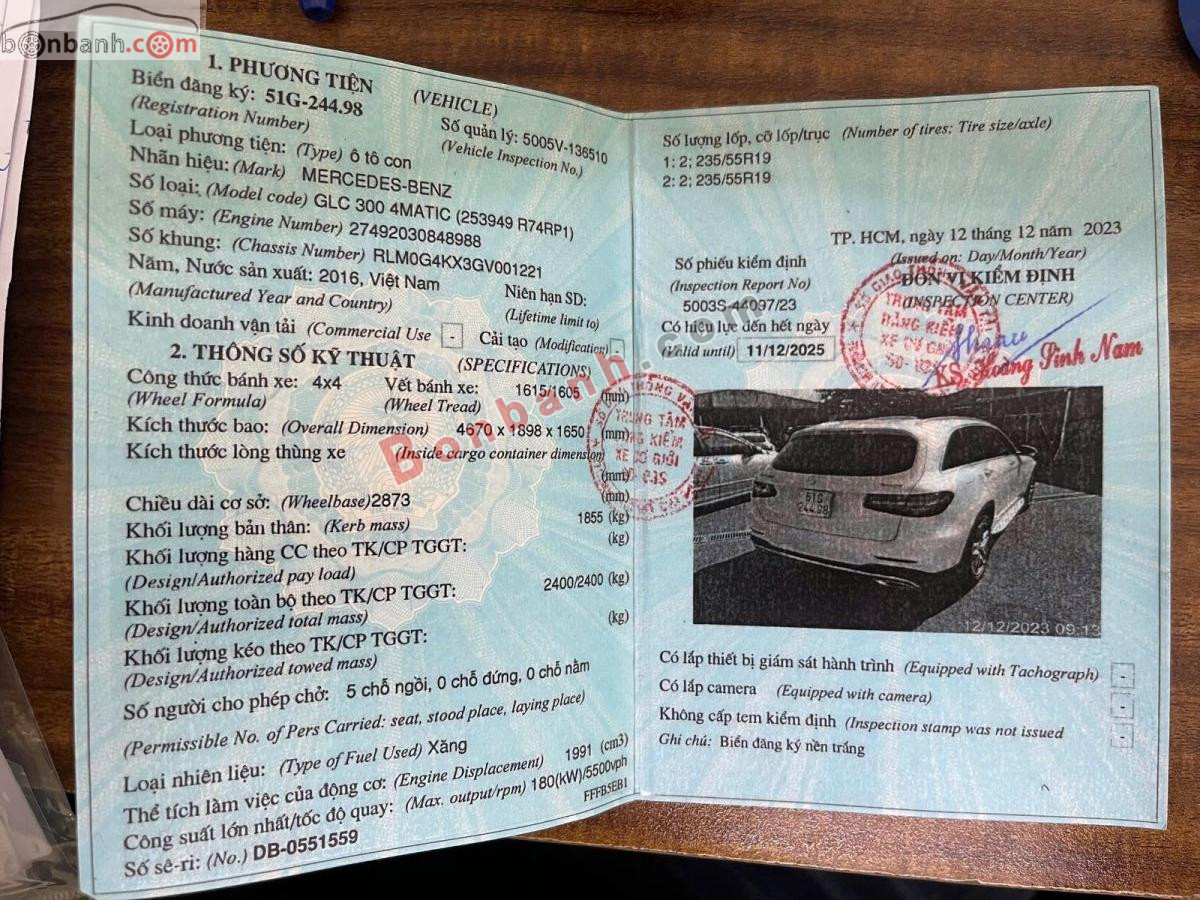 bonbanh.com
1. PHƯƠNG TIỆN (VEHICLE)
Biển đăng ký: 51G-244.98
(Registration Number)
Số quản lý: 5005V-136510
(Vehicle Inspection No.)
Loại phương tiện: (Type) ô tô con
Nhãn hiệu: (Mark) MERCEDES-BENZ
Số loại: (Model code) GLC 300 4MATIC (253949 R74RP1)
Số máy: (Engine Number) 27492030848988
Số khung: (Chassis Number) RLM0G4KX3GV001221
Năm, Nước sản xuất: 2016, Việt Nam
(Manufactured Year and Country)
Niên hạn SD:
(Lifetime limit to)
Kinh doanh vận tải (Commercial Use - Cải tạo (Modification)
2. THÔNG SỐ KỸ THUẬT (SPECIFICATIONS)
Công thức bánh xe: 4x4 Vết bánh xe: 1615/1605 (mm)
(Wheel Formula) (Wheel Tread)
Kích thước bao: (Overall Dimension) 4670 x 1898 x 1650 (mm)
Kích thước lòng thùng xe (Inside cargo container dimension)
(mm)
Chiều dài cơ sở: (Wheelbase) 2873 (mm)
Khối lượng bản thân: (Kerb mass) 1855 (kg)
Khối lượng hàng CC theo TK/CP TGGT: (kg)
(Design/Authorized pay load)
Khối lượng toàn bộ theo TK/CP TGGT: 2400/2400 (kg)
(Design/Authorized total mass)
Khối lượng kéo theo TK/CP TGGT: (kg)
(Design/Authorized towed mass)
Số người cho phép chở: 5 chỗ ngồi, 0 chỗ đứng, 0 chỗ nằm
(Permissible No. of Pers Carried: seat, stood place, laying place)
Loại nhiên liệu: (Type of Fuel Used) Xăng
Thể tích làm việc của động cơ: (Engine Displacement) 1991 (cm3)
Công suất lớn nhất/tốc độ quay: (Max. output/rpm) 180(kW)/5500vph
FFFB5EB1
Số sê-ri: (No.) DB-0551559
Bonbanh.com
TRUNG TÂM
ĐĂNG KIỂM
XE CƠ GIỚI
Số lượng lốp, cỡ lốp/trục (Number of tires; Tire size/axle)
1: 2; 235/55R19
2: 2; 235/55R19
TP. HCM, ngày 12 tháng 12 năm 2023
(Issued on: Day/Month/Year)
Số phiếu kiểm định
(Inspection Report No)
5003S-44097/23
Có hiệu lực đến hết ngày
(Valid until) 11/12/2025
ĐƠN VỊ KIỂM ĐỊNH
(INSPECTION CENTER)
TRUNG TÂM
ĐĂNG KIỂM
XE CƠ GIỚI
KS. Hoàng Tính Nam
51G
244.98
12/12/2023 09:13
Có lắp thiết bị giám sát hành trình (Equipped with Tachograph) -
Có lắp camera (Equipped with camera) -
Không cấp tem kiểm định (Inspection stamp was not issued -
Ghi chú: Biển đăng ký nền trắng